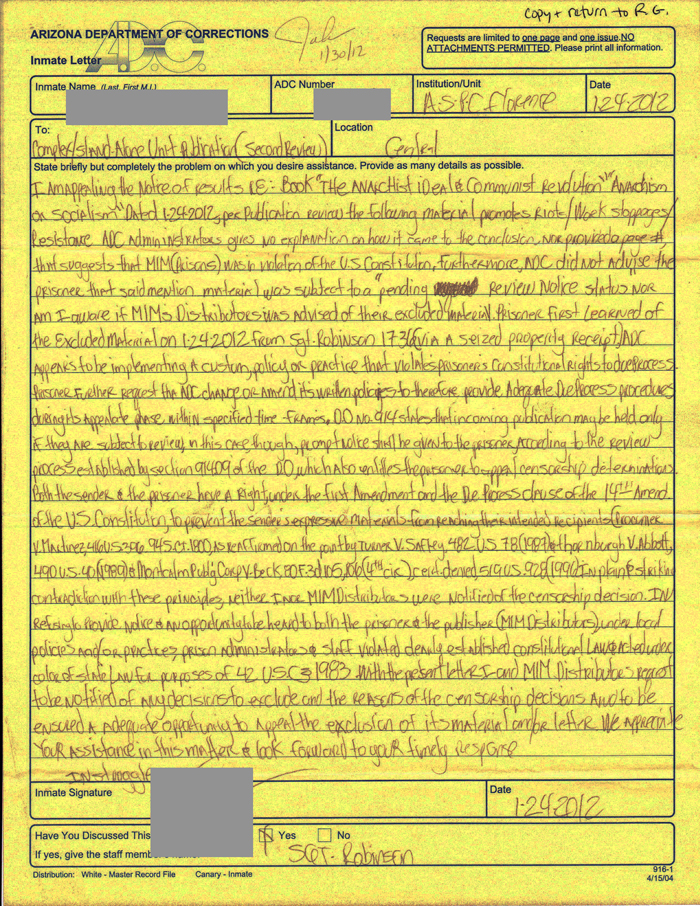 copy + return to R G.
ARIZONA DEPARTMENT OF CORRECTIONS
A.D.C.
1/30/12
Inmate Letter
Requests are limited to one page and one issue. NO
ATTACHMENTS PERMITTED. Please print all information.
Inmate Name (Last, First M.I.)
ADC Number
Institution/Unit
A.S.P.C Florence
Date
1-24-2012
To:
Complex/stand-Alone Unit Publication (Second Review)
Location
Central
State briefly but completely the problem on which you desire assistance. Provide as many details as possible.
I Am appealing the Notice of results RE: Book "THE ANARCHist iDeal & Communist Revolution" "Anarchism
or Socialism" Dated 1-24-2012, per Publication review the following material promotes Riots/Work stoppages/
Resistance ADC Administrators gives no explanation on how it came to the conclusion, Nor provided a page #,
that suggests that MIM(Prisons) was in violation of the U.S Constitution, Furthermore, ADC did not Advise the
prisoner that said mention material was subject to a "pending Review Notice status" Nor
Am I aware if MIM's Distributors was advised of their excluded material. Prisoner First Learned of
the Excluded Material on 1-24-2012 from Sgt. Robinson 1736 (via A seized property Receipt) ADC
Appears to be implementing A custom, policy or practice that violates prisoner's Constitutional Rights to due Process
Prisoner Further Request the ADC change or Amend its written policies to therefore provide Adequate Due Process procedures
during its Appellate phase within specified time Frames. D.O No. 914 states that incoming publication may be held only
if they Are subject to review, in this case though, prompt notice shall be given to the prisoner, According to the review
process established by section 914.09 of the D.O, which Also entitles the prisoner to appeal censorship determination
Both the sender & the prisoner have A Right, under the First Amendment and the Due Process clause of the 14th Amend
of the U.S Constitution, to prevent the sender's expressive materials from reaching their intended recipients (Procunier
V. Martinez, 416 U.S 396 94 S.Ct. 1800) As reaffirmed on the point by Turner V. Safley, 482 U.S 78 (1987) & Thornburgh V. Abbott,
490 U.S. 401 (1989) & Montcalm Publ Corp V. Beck, 80 F.3d 105, 106 (4th cir), cert. denied 519 U.S. 928 (1996) In plain & striking
contradiction with these principles, neither I nor MIM Distributors were Notified of the censorship decision. IN
Refusing to Provide Notice & An opportunity to be heard to both the prisoner & the publisher (MIM Distributors), under local
policies and/or practices, prison Administrators & staff violated clearly established constitutional LAW & Acted under
color of state LAW for purposes of 42 USC § 1983. With the present letter I and MIM Distributors request
to be notified of any decisions to exclude and the Reasons of the censorship decisions And to be
ensured A adequate opportunity to Appeal the exclusion of its material and/or letter. We Appreciate
Your Assistance in this matter & look forward to your timely response
IN struggle
Inmate Signature
Date
1-24-2012
Have You Discussed This
Yes
No
If yes, give the staff
SGT. Robinson
Distribution: White - Master Record File Canary - Inmate
916-1
4/15/04